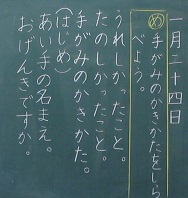 一月二十四日
め 手がみのかきかたをしら
べよう。
うれしかったこと。
たのしかったこと。
手がみのかきかた。
(はじめ)
あい手の名まえ。
おげんきですか。